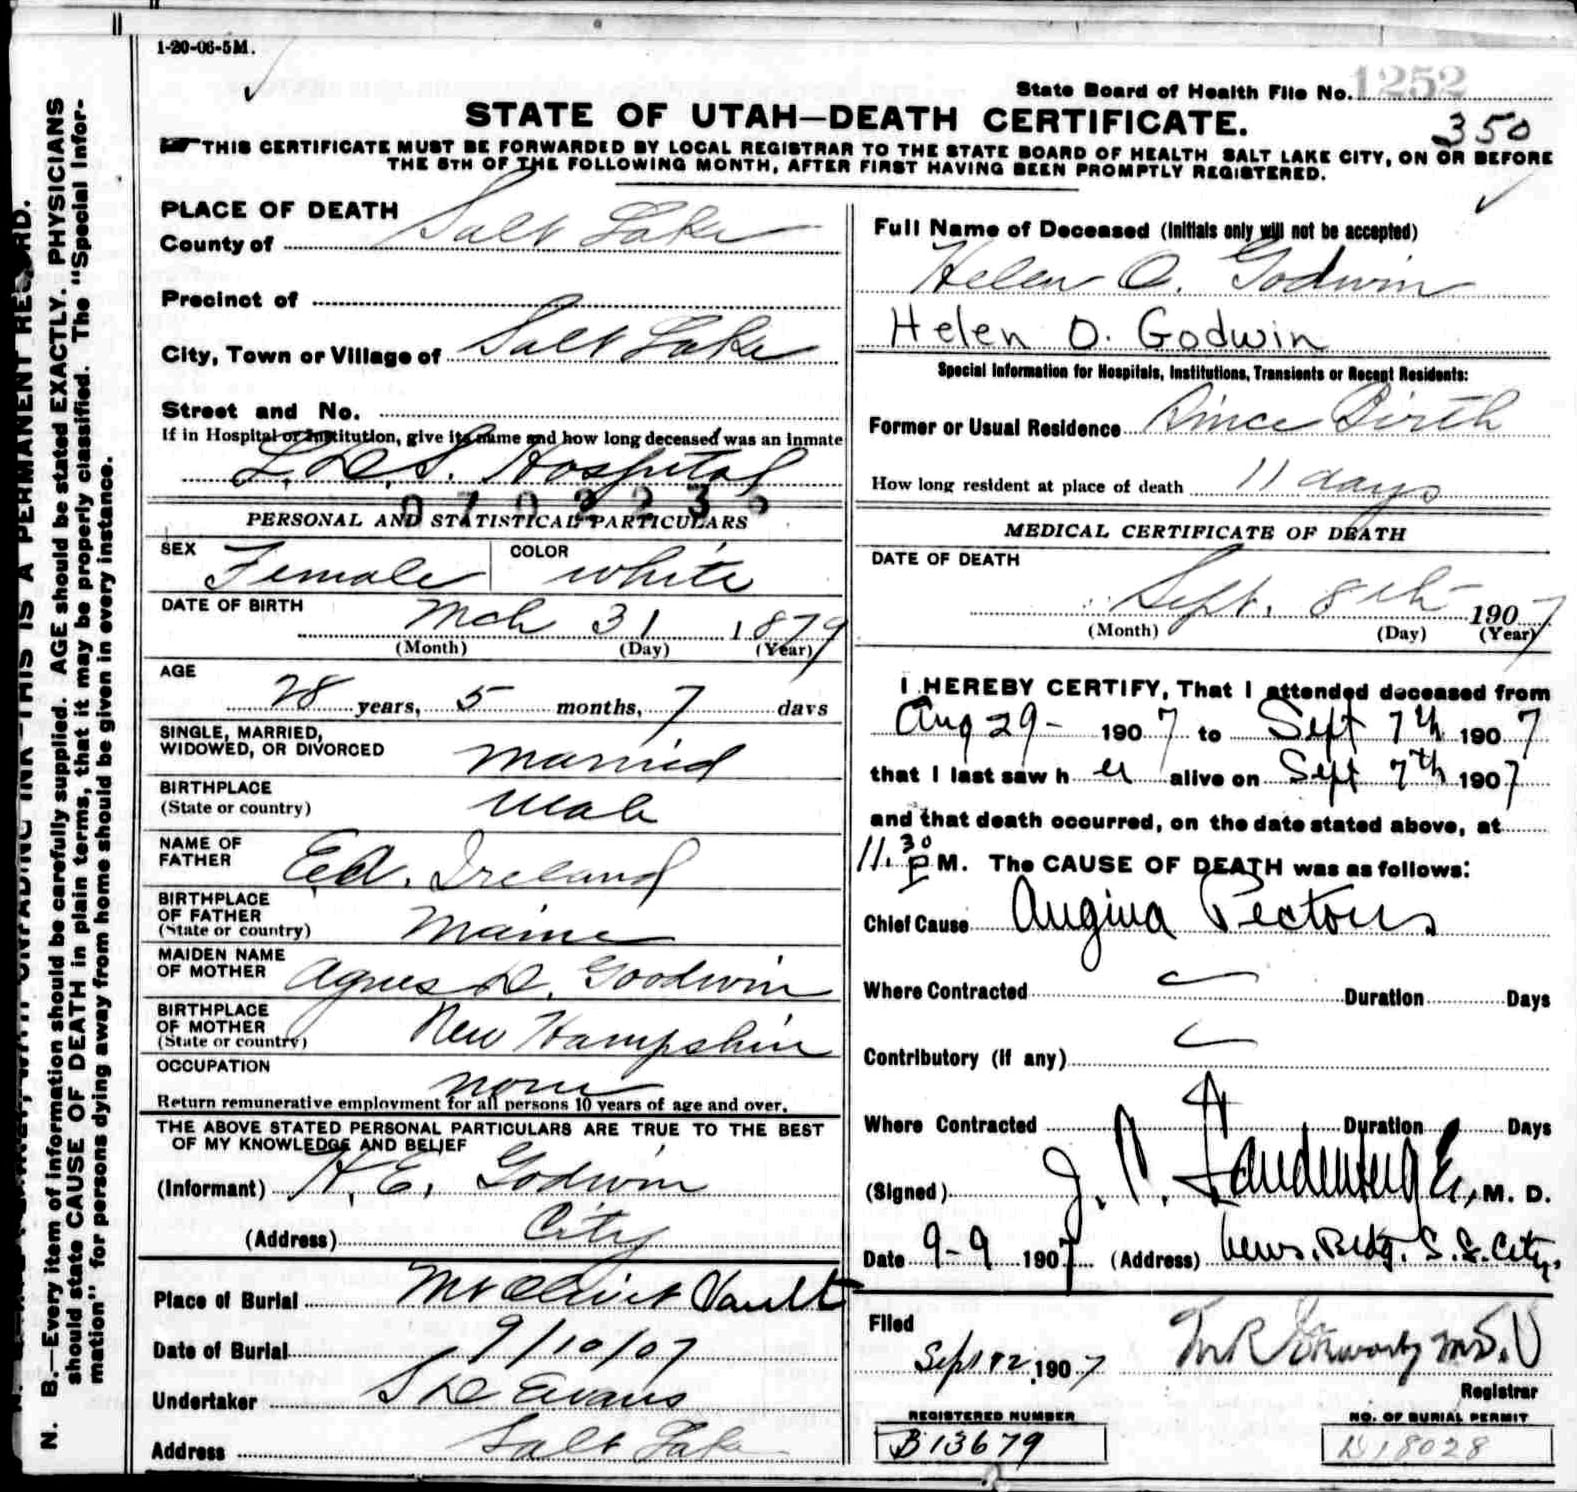 1-20-06-5M.
State Board of Health File No. 1252
STATE OF UTAH—DEATH CERTIFICATE.
350
THIS CERTIFICATE MUST BE FORWARDED BY LOCAL REGISTRAR TO THE STATE BOARD OF HEALTH, SALT LAKE CITY, ON OR BEFORE
THE 5TH OF THE FOLLOWING MONTH, AFTER FIRST HAVING BEEN PROMPTLY REGISTERED.
N. B.—Every item of information should be carefully supplied. AGE should be stated EXACTLY. PHYSICIANS
should state CAUSE OF DEATH in plain terms, that it may be properly classified. The "Special Infor-
mation" for persons dying away from home should be given in every instance.
UNFADING INK—THIS IS A PERMANENT RECORD.
PLACE OF DEATH
County of Salt Lake
Precinct of
City, Town or Village of Salt Lake
Street and No.
If in Hospital or Institution, give its name and how long deceased was an inmate
L.D.S. Hospital
PERSONAL AND STATISTICAL PARTICULARS
SEX Female COLOR White
DATE OF BIRTH Mch 31 1879
(Month) (Day) (Year)
AGE
28 years, 5 months, 7 days
SINGLE, MARRIED,
WIDOWED, OR DIVORCED Married
BIRTHPLACE
(State or country) Utah
NAME OF
FATHER Ed. Ireland
BIRTHPLACE
OF FATHER
(State or country) Maine
MAIDEN NAME
OF MOTHER Agnes D. Goodwin
BIRTHPLACE
OF MOTHER
(State or country) New Hampshire
OCCUPATION
none
Return remunerative employment for all persons 10 years of age and over.
THE ABOVE STATED PERSONAL PARTICULARS ARE TRUE TO THE BEST
OF MY KNOWLEDGE AND BELIEF
(Informant) H. E. Godwin
(Address) City
Place of Burial Mt Olivet Vault
Date of Burial 9/10/07
Undertaker S D Evans
Address Salt Lake
Full Name of Deceased (Initials only will not be accepted)
Helen O. Godwin
Helen O. Godwin
Special Information for Hospitals, Institutions, Transients or Recent Residents:
Former or Usual Residence Since Birth
How long resident at place of death 11 days
MEDICAL CERTIFICATE OF DEATH
DATE OF DEATH
Sept. 8th 1907
(Month) (Day) (Year)
I HEREBY CERTIFY, That I attended deceased from
Aug 29- 1907 to Sept 7th 1907
that I last saw her alive on Sept 7th 1907
and that death occurred, on the date stated above, at
11.30 P M. The CAUSE OF DEATH was as follows:
Chief Cause Angina Pectoris
Where Contracted Duration Days
Contributory (if any)
Where Contracted Duration Days
(Signed) J. M. D.
Date 9-9 1907 (Address) News. Bldg. S. L. City.
Filed
Sept 12 1907
Registrar
REGISTERED NUMBER
B13679
NO. OF BURIAL PERMIT
D18028